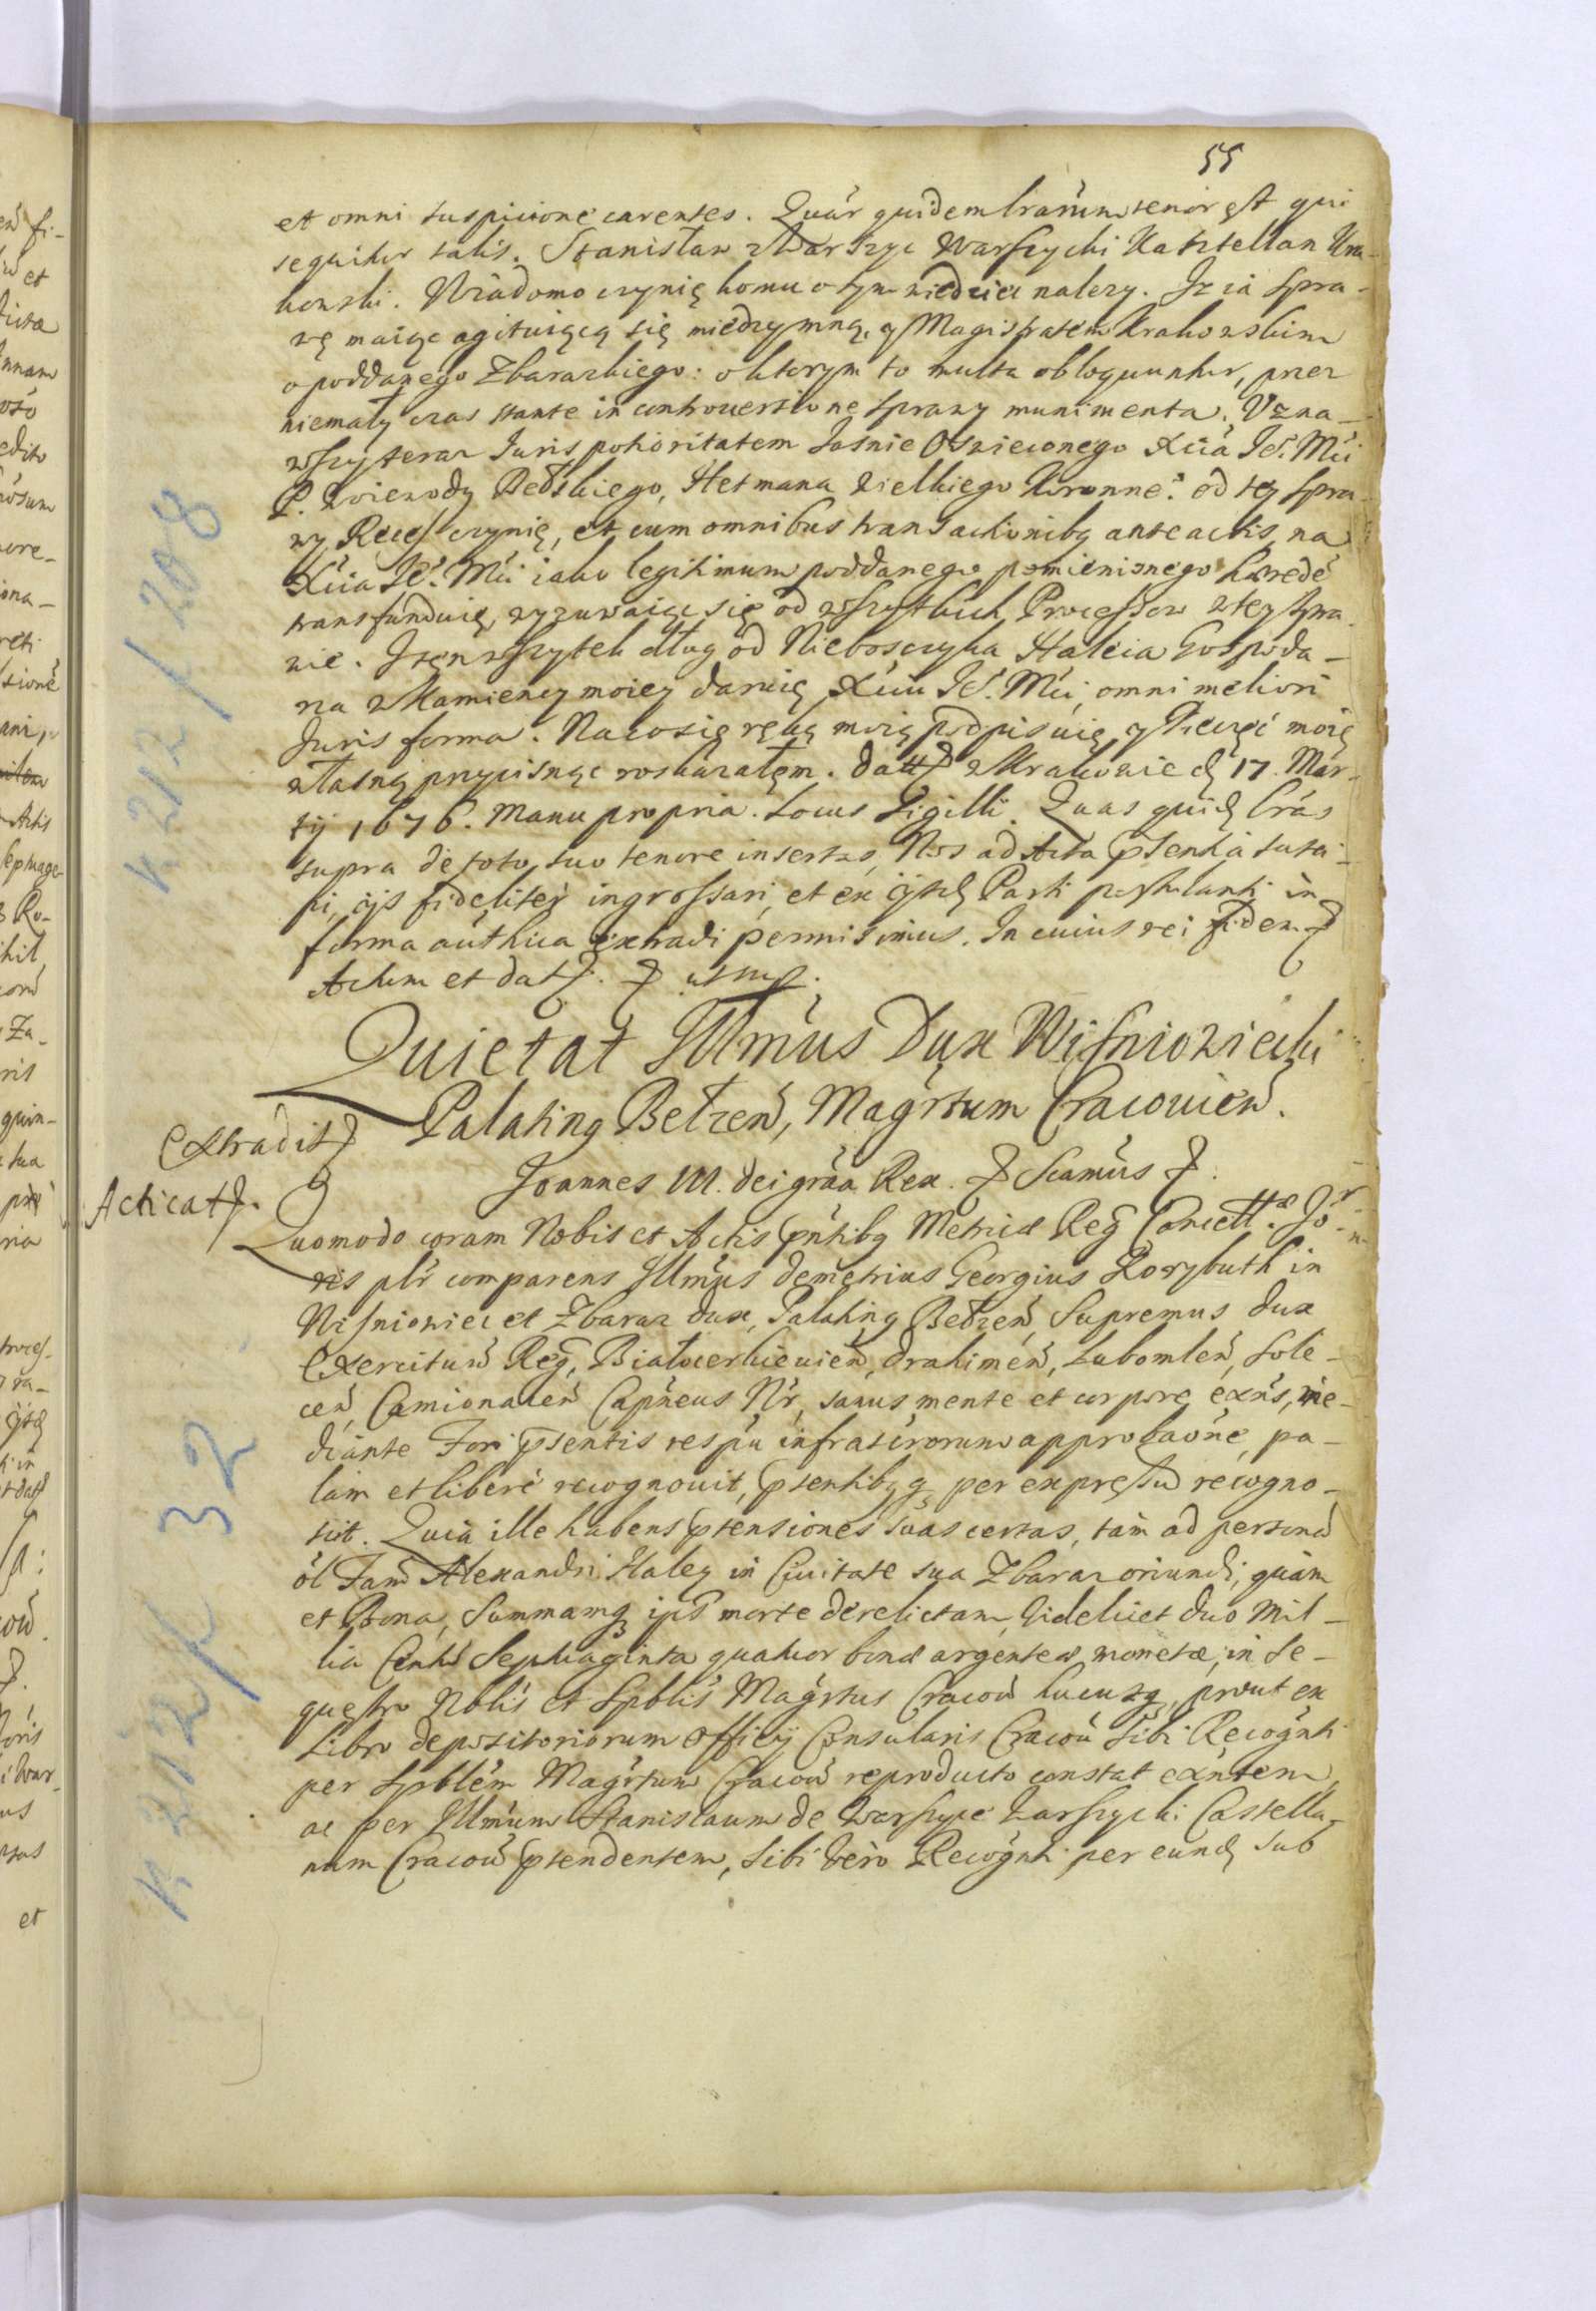 55
et omni suspicione carentes. Quar quidem lrarum tenor est qui
sequitur talis. Stanisław z Warszyc Warszycki Kasztellan Kra-
kowski. Wiadomo czynię komu o tym wiedzieć nalezy. Iz ia spra-
wę maiąc agituiącą się między mną, y Magistratem Krakowskim
o poddanego Zbarazkiego: o ktorym to multa obloquuntur, przez
niemały czas stante in controversione sprawy munimenta. Uzna-
wszy teraz Juris potioritatem Jasnie Oswieconego Xcia Je. Mci
P. Woiewody Bełskiego, Hetmana Wielkiego Koronne: od tey spra-
wy Recess czynię, et cum omnibus transactionibq ante actis na
Xcia Je. Mci iako legitimum poddanego pomienionego hærede
transfunduię, wyzuwaiąc się od wszytkich Processow w tey spra-
wie. Iten wszytek dług od Nieboszczyka Haleia Gospoda-
rza w Kamienicy moiey daruię Xciu Je. Mci, omni meliori
Juris forma. Na co się ręką moią podpisuię y Pieczęć moię
własną przycisnąc roskazałem. Datt w Krakowie d 17. Mar-
tij 1676. Manu propria. Locus Sigilli. Quas quid lras
supra de toto suo tenore insertas, Nos ad Acta psentia susci-
pi, ijs fideliter ingrossari, et ex ijsd Parti postulanti in
forma authica extradi permisimus. In cuius rei fidem
Actum et dat. ut sup.
Quietat Illmus Dux Wisniowiecki
Palatinq Bełzen, Magrtum Cracovien.
Extradit
Joannes III. Dei graa Rex. Scamus
Acticat.
Quomodo coram Nobis et Actis pntibq Metricæ Reg Concellæ Jo-
ris plr comparens Illmus Demetrius Georgius Korybuth in
Wisniowiec et Zbaraz Dux, Palatinq Bełzen, Supremus Dux
Exercituu Reg, Białocerkievien, Drahimen, Lubomlen, Sole-
cen, Camionacen Capneus Nr, sanus mente et corpore exns, me-
diante Fori psentis respu infrascrorum approbaone, pa-
lam et libere recognovit, psentibqq per expressu recogno-
scit. Quia ille habens ptensiones suas certas, tam ad persona
ol Fam Alexandri Haley in Civitate sua Zbaraz oriundi, quam
et Bona, Summamq ips morte derelictam, videlicet duo Mil-
lia Centu Septuaginta quatuor bonæ argenteæ monetæ, in Se-
questro Noblis et Spblis Magrtus Cracov hucusq, prout ex
Libro depositoriorum Officij Consularis Cracov sibi Recognti
per Spblem Magrtum Cracov reproducto constat exntem,
ac per Illmum Stanislaum de Warszyce Warszycki Castella-
num Cracov ptendentem, sibi vero Recognti per eund sub
K 212/208
K 212/ K 32